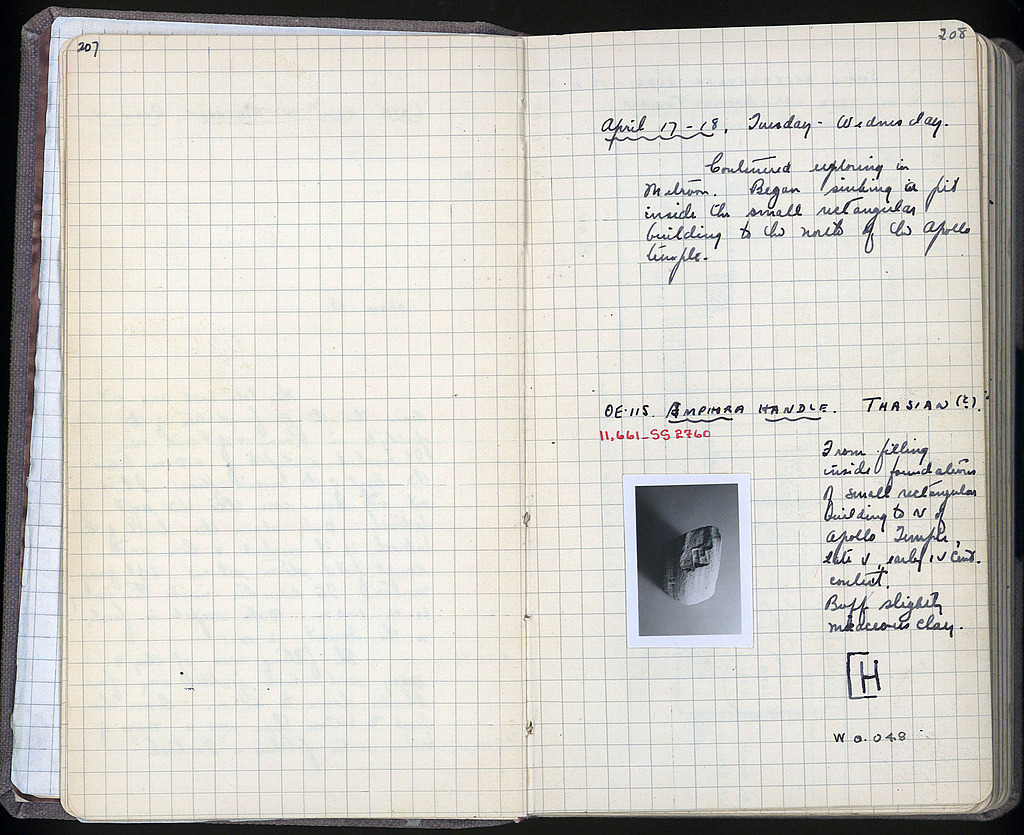 207
208
April 17-18, Tuesday - Wednesday.
Continued exploring in
Metroon. Began sinking a pit
inside the small rectangular
building to the north of the Apollo
temple.
OE·115. AMPHORA HANDLE. THASIAN (?).
11,661-SS 2760
From filling
inside foundations
of small rectangular
building to N of
Apollo Temple,
late V, early IV Cent.
context.
Buff slightly
micaceous clay.
H
W 0.048